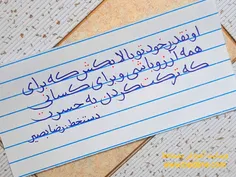 اونقدر خودتو بالا بکش که برای
همه آرزو باشی و برای کسانی
که ترکت کردن یه حسرت
دستخط: رضا بصیر